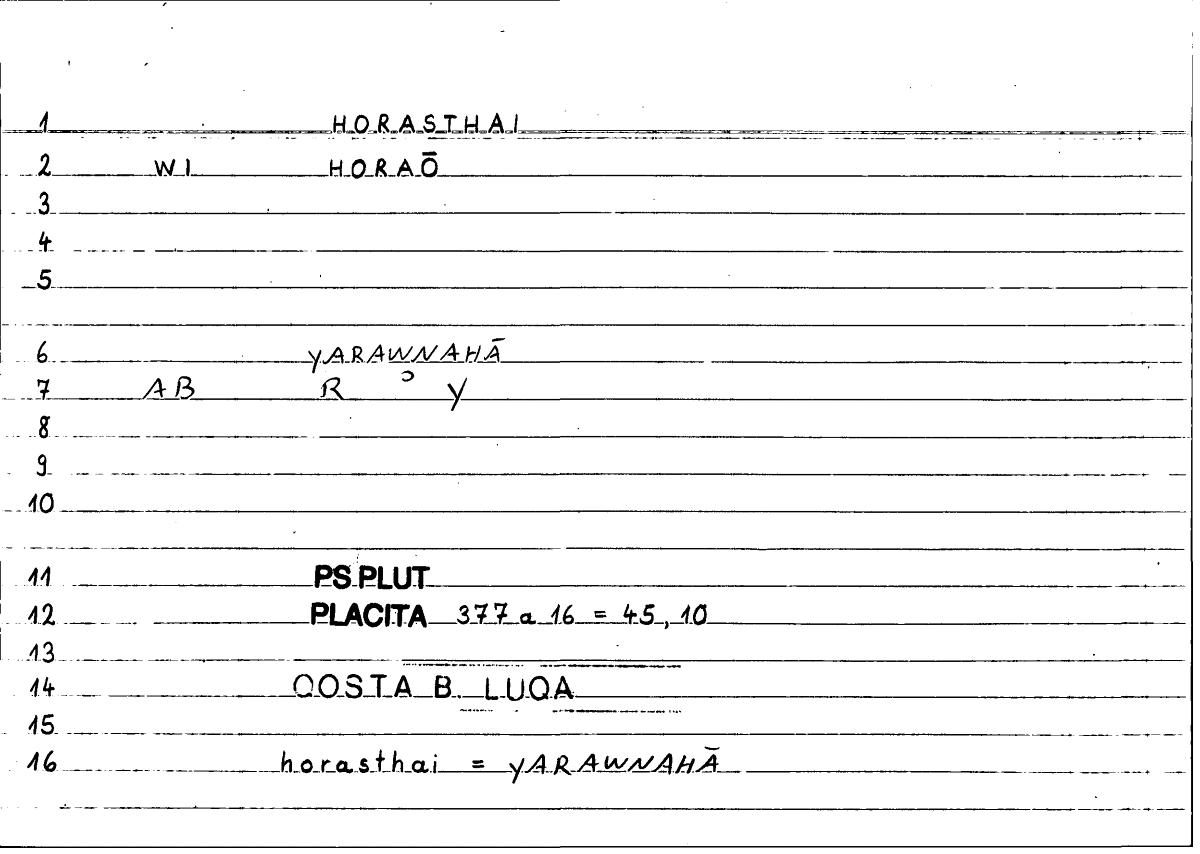 1 HORASTHAI
2 WI HORAŌ
3
4
5
6 yARAWNAHĀ
7 AB R ʾ Y
8
9
10
11 PS.PLUT
12 PLACITA 377 a 16 = 45, 10
13
14 QOSTA B. LUQA
15
16 horasthai = yARAWNAHĀ